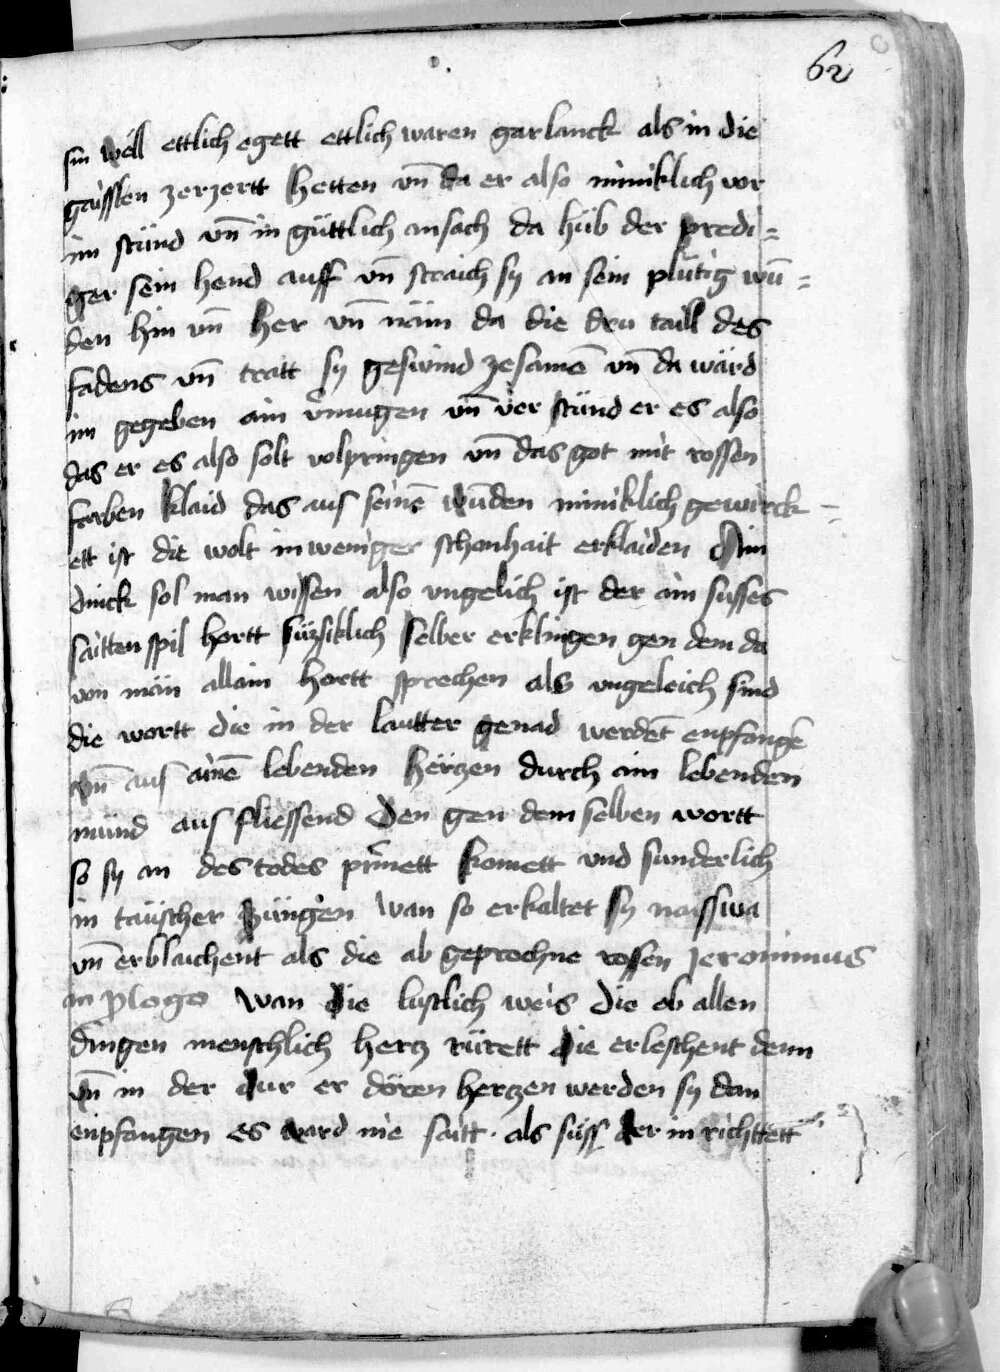 62
sin wöll ettlich egett ettlich waren gar lanck als in die
gaisslen zerzertt hetten vn̄ da er also miniklich vor
im stünd vn̄ in güttlich ansach da hüb der predi=
ger sein hend auff vn̄ straich sy an sein plütig wū=
den hin vn̄ her vn̄ näm da die dru taill des
fadens vn̄ tratt sy geswind zesamē vn̄ da wärd
im gegeben ain vmugen vn̄ ver stünd er es also
das er es also solt volpringen vn̄ das got mit rossen
farben klaid das aus seinē wunden miniklich gewirck=
ett ist die wolt in weniger schonhait erklaiden Ain
dinck sol man wissen also vngelich ist der ain susses
saitten spil hortt süzsiklich selber erklingen gen dem da
von män allain hortt sprechen als vngeleich sind
die wortt die in der lautter genad werdēt enpfangē
vn̄ aus ainē lebenden hertzen durch ain lebenden
münd aus fliessend Den gen dem selben wortt
so sy an des todes pirmett komett vnd sunderlich
in taüscher züngen wan so erkaltet sy naisswa
vn̄ erblaichent als die ab geprochne rossen Jeronimus
in plogo wan die lustlich weis die ob allen
dingen menschlich hertz rürett die erleschent denn
vn̄ in der dur er dören hertzen werden sy dan
enpfangen es ward nie saitt als süss der in richttett